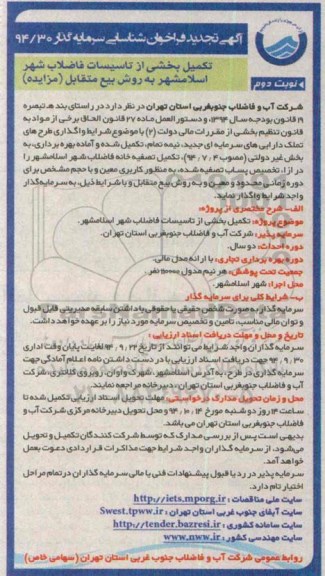 آگهی تجدید فراخوان شناسایی سرمایه گذار ۹۴/۳۰
تکمیل بخشی از تاسیسات فاضلاب شهر
اسلامشهر به روش بیع متقابل (مزایده)
نوبت دوم
شرکت آب و فاضلاب جنوبغربی استان تهران در نظر دارد در راستای بند ه تبصره
۱۹ قانون بودجه سال ۱۳۹۴، و دستورالعمل ماده ۲۷ قانون الحاق برخی از مواد به
قانون تنظیم بخشی از مقررات مالی دولت (۲) با موضوع شرایط واگذاری طرح های
تملک دارایی های سرمایه ای جدید، نیمه تمام، تکمیل شده و آماده بهره برداری، به
بخش غیر دولتی (مصوب ۹۴/۷/۴)، تکمیل تصفیه خانه فاضلاب شهر اسلامشهر را
در ازاء تخصیص پساب تصفیه شده، به منظور کاربری معین و با حجم مشخص برای
دوره زمانی محدود و معین و به روش بیع متقابل و با شرایط ذیل، به سرمایه گذار
واجد شرایط واگذار نماید.
الف- شرح مختصری از پروژه:
موضوع پروژه: تکمیل بخشی از تاسیسات فاضلاب شهر اسلامشهر.
سرمایه پذیر: شرکت آب و فاضلاب جنوبغربی استان تهران.
دوره احداث: دو سال.
دوره بهره برداری تجاری: با ارائه مدل مالی.
جمعیت تحت پوشش: هر نیم مدول نفر
محل اجرا: شهر اسلامشهر.
ب- شرایط کلی برای سرمایه گذار
سرمایه گذار به صورت شخص حقیقی یا حقوقی با داشتن سابقه مدیریتی قابل قبول
و توان مالی مناسب، تامین و تخصیص سرمایه مورد نیاز را بر عهده خواهد داشت.
تاریخ و محل و مهلت دریافت اسناد ارزیابی:
سرمایه گذاران واجد شرایط می توانند از تاریخ ۹۴/۹/۲۲ لغایت پایان وقت اداری
۹۴/۹/۳۰ جهت دریافت اسناد ارزیابی با در دست داشتن نامه اعلام آمادگی جهت
سرمایه گذاری در طرح، به آدرس اسلامشهر، شهرک واوان، روبروی کلانتری، شرکت
آب و فاضلاب جنوبغربی استان تهران، دبیرخانه مراجعه نمایند.
محل و زمان تحویل مدارک درخواستی: مهلت تحویل اسناد ارزیابی تکمیل شده تا
ساعت ۱۴ روز دوشنبه مورخ ۹۴/۱۰/۱۴ و محل تحویل دبیرخانه مرکزی شرکت آب و
فاضلاب جنوبغربی استان تهران می باشد.
بدیهی است پس از بررسی مدارک که توسط شرکت کنندگان تکمیل و تحویل
می شود، از سرمایه گذاران واجد شرایط جهت مذاکرات قراردادی دعوت بعمل
خواهد آمد.
سرمایه پذیر در رد یا قبول پیشنهادات فنی یا مالی سرمایه گذاران در تمام مراحل
اختیار تام دارد.
سایت ملی مناقصات: http://iets.mporg.ir
سایت آبفای جنوب غربی استان تهران: Swest.tpww.ir
سایت سامانه کشوری: http://tender.bazresi.ir
سایت مهندسی کشور: www.nww.ir
روابط عمومی شرکت آب و فاضلاب جنوب غربی استان تهران (سهامی خاص)